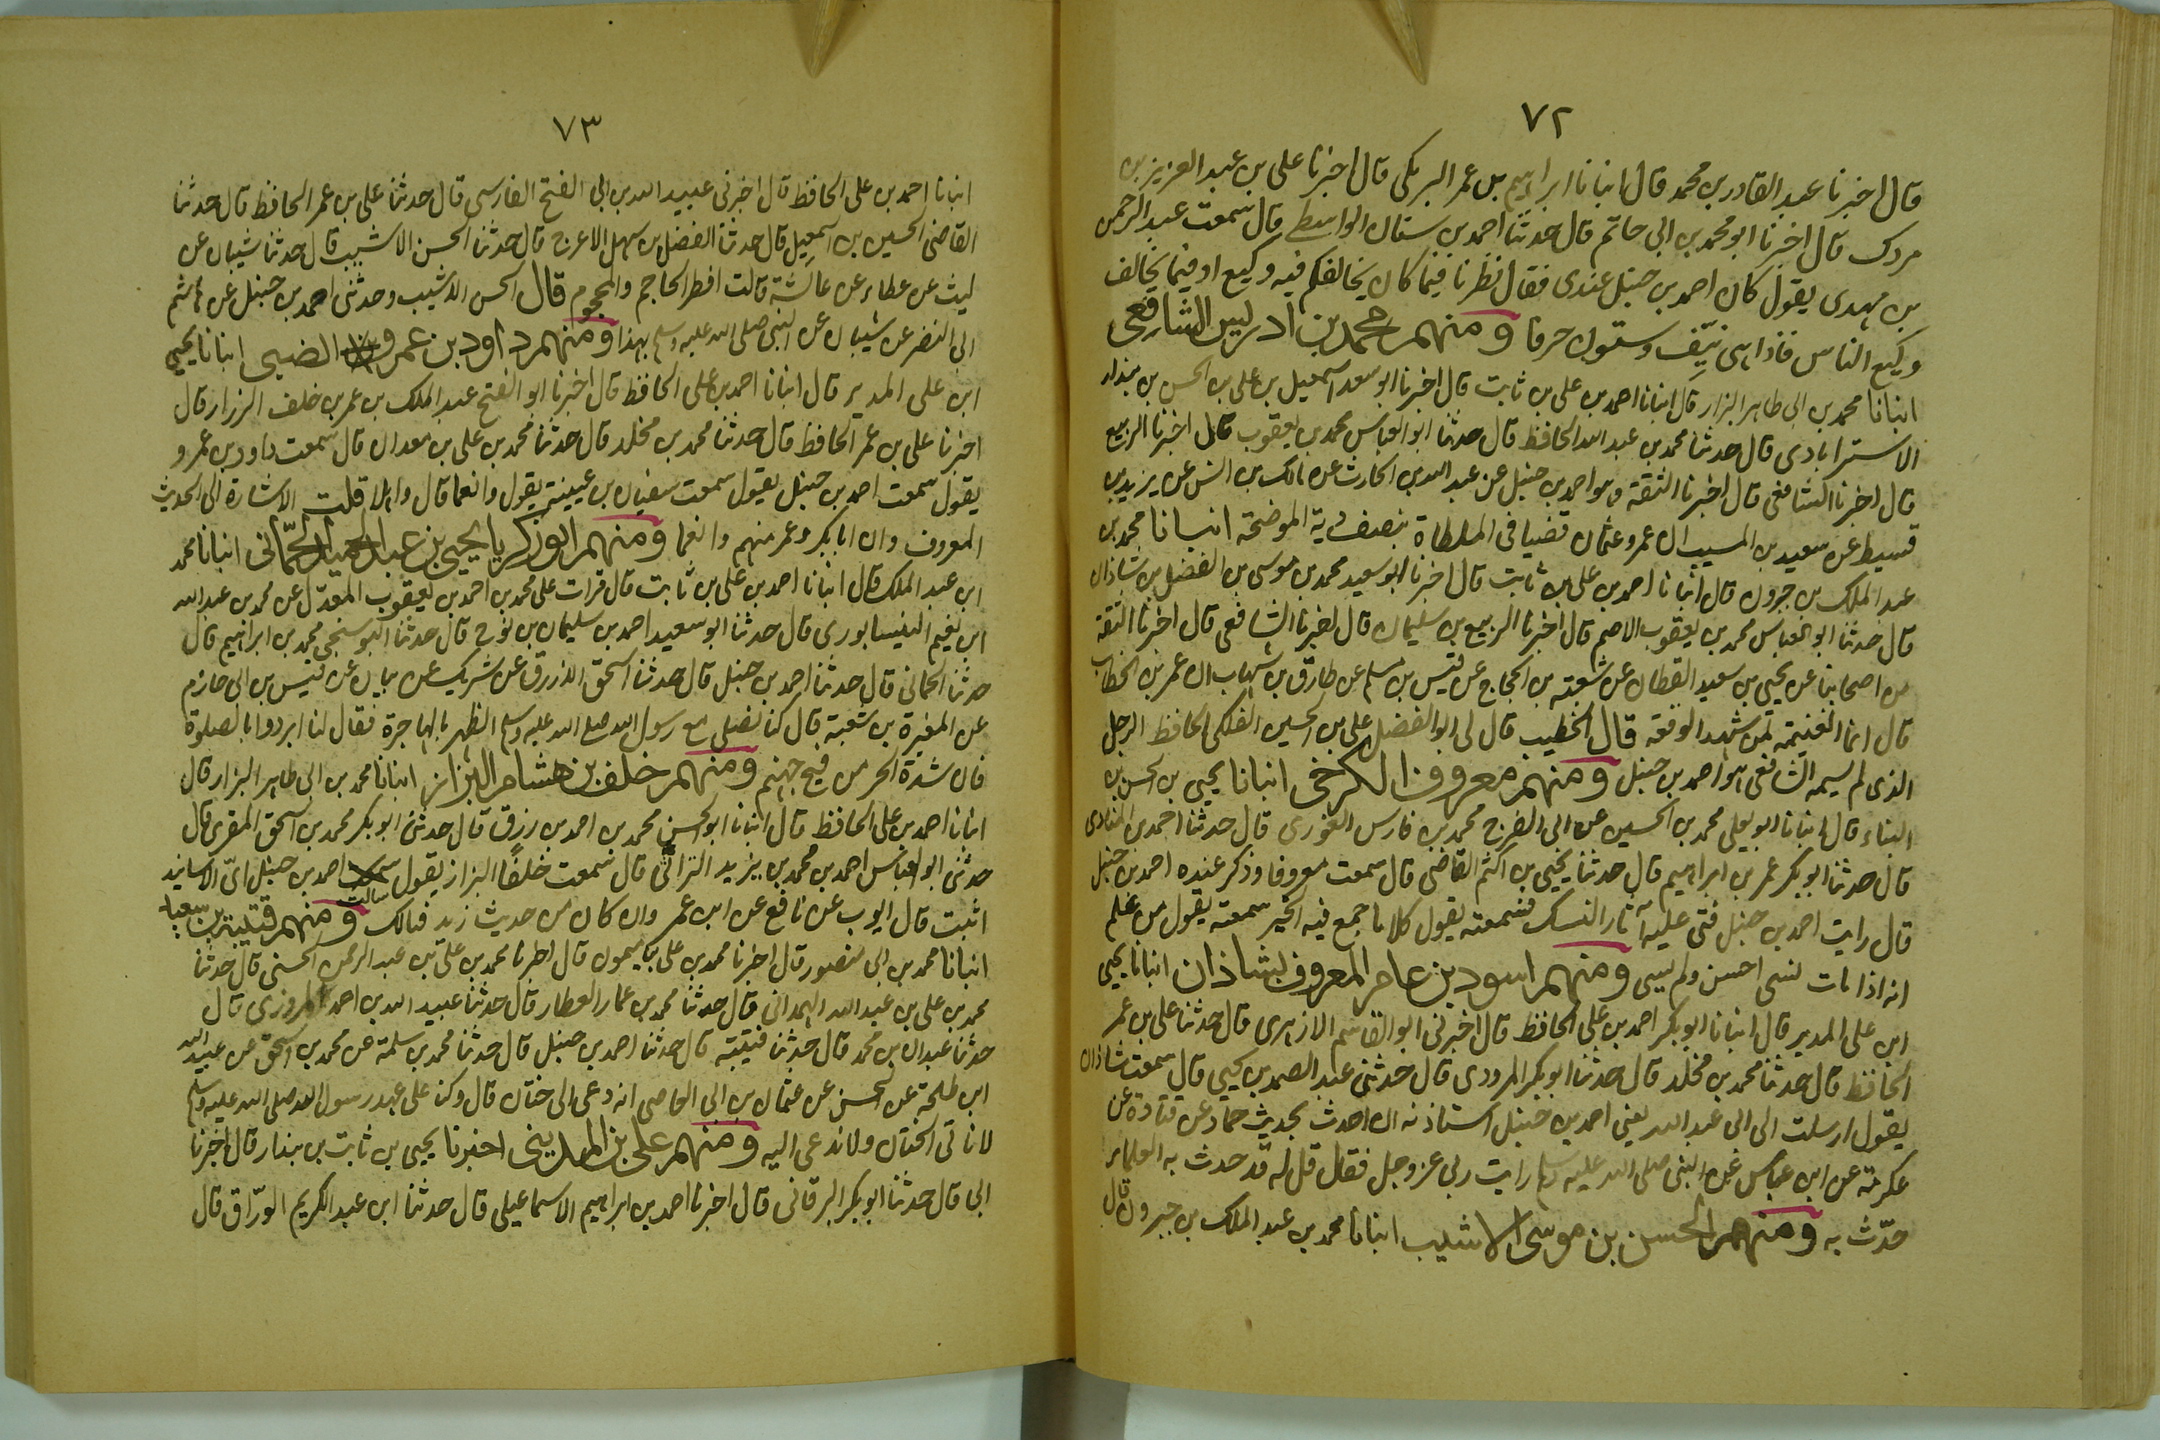 ٧٢
قال اخبرنا عبد القادر بن محمد قال انبانا ابراهيم بن عمر البرمكى قال اخبرنا على بن عبد العزيز بن
مردك قال اخبرنا ابو محمد بن ابى حاتم قال حدثنا احمد بن سنان الواسطى قال سمعت عبد الرحمن
بن مهدى يقول كان احمد بن حنبل عندى فقال نظرنا فيما كان يخالفكم فيه وكيع او فيما يخالف
وكيع الناس فاذا هى نيّف وستون حرفا ومنهم محمد بن ادريس الشافعى
انبانا محمد بن ابى طاهر البزار قال انبانا احمد بن على بن ثابت قال اخبرنا ابو سعد اسمعيل بن على بن الحسن بن بندار
الاستراباذى قال حدثنا محمد بن عبد الله الحافظ قال حدثنا ابو العباس محمد بن يعقوب قال اخبرنا الربيع
قال اخبرنا الشافعى قال اخبرنا الثقة وهو احمد بن حنبل عن عبد الله بن الحارث عن مالك بن انس عن يزيد بن
قسيط عن سعيد بن المسيب ان عمر وعثمان قضيا فى الملطاة بنصف دية الموضحة انبانا محمد بن
عبد الملك بن خيرون قال انبانا احمد بن على بن ثابت قال اخبرنا ابو سعيد محمد بن موسى بن الفضل بن شاذان
قال حدثنا ابو العباس محمد بن يعقوب الاصم قال اخبرنا الربيع بن سليمان قال اخبرنا الشافعى قال اخبرنا الثقة
من اصحابنا عن يحيى بن سعيد القطان عن شعبة بن الحجاج عن قيس بن مسلم عن طارق بن شهاب ان عمر بن الخطاب
قال انما الغنيمة لمن شهد الوقعة قال الخطيب قال لى ابو الفضل على بن الحسين الفلكى الحافظ الرجل
الذى لم يسمه الشافعى هو احمد بن حنبل ومنهم معروف الكرخى انبانا يحيى بن الحسن بن
البناء قال انبانا ابو يعلى محمد بن الحسين عن ابى الفرج محمد بن فارس الغورى قال حدثنا احمد بن المنادى
قال حدثنا ابو بكر عمر بن ابراهيم قال حدثنا يحيى بن اكثم القاضى قال سمعت معروفا وذكر عنده احمد بن حنبل
قال رايت احمد بن حنبل فتى عليه آثار النسك فسمعته يقول كلاما جمع فيه الخير سمعته يقول من علم
انه اذا مات نسى احسن ولم يسى ومنهم اسود بن عامر المعروف بشاذان انبانا يحيى
ابن على المدير قال انبانا ابو بكر احمد بن على الحافظ قال اخبرنى ابو القاسم الازهرى قال حدثنا على بن عمر
الحافظ قال حدثنا محمد بن مخلد قال حدثنا ابو بكر المرودى قال حدثنى عبد الصمد بن يحيى قال سمعت شاذان
يقول ارسلت الى ابى عبد الله يعنى احمد بن حنبل استاذنه ان احدث بحديث حماد عن قتادة عن
عكرمة عن ابن عباس عن النبى صلى الله عليه وسلم رايت ربى عز وجل فقال قل له قد حدث به العلماء
حدّث به ومنهم الحسن بن موسى الاشيب انبانا محمد بن عبد الملك بن خيرون قال
٧٣
انبانا احمد بن على الحافظ قال اخبرنى عبيد الله بن ابى الفتح الفارسى قال حدثنا على بن عمر الحافظ قال حدثنا
القاضى الحسين بن اسمعيل قال حدثنا الفضل بن سهل الاعرج قال حدثنا الحسن الاشيب قال حدثنا شيبان عن
ليث عن عطاء عن عائشة قالت افطر الحاجم والمحجوم قال الحسن الاشيب وحدثنى احمد بن حنبل عن هاشم
ابى النضر عن شيبان عن النبى صلى الله عليه وسلم بهذا ومنهم داود بن عمرو الضبى انبانا يحيى
ابن على المدير قال انبانا احمد بن على الحافظ قال اخبرنا ابو الفتح عبد الملك بن عمر بن خلف الرزاز قال
اخبرنا على بن عمر الحافظ قال حدثنا محمد بن مخلد قال حدثنا محمد بن على بن معدان قال سمعت داود بن عمرو
يقول سمعت احمد بن حنبل يقول سمعت سفيان بن عيينة يقول وانعما قال واهلا قلت الاشارة الى الحديث
المعروف وان ابا بكر وعمر منهم وانعما ومنهم ابو زكريا يحيى بن عبد الحميد الحمّانى انبانا محمد
ابن عبد الملك قال انبانا احمد بن على بن ثابت قال قرات على محمد بن احمد بن يعقوب المعدّل عن محمد بن عبد الله
ابن نعيم النيسابورى قال حدثنا ابو سعيد احمد بن سليمان بن نوح قال حدثنا البوسنجى محمد بن ابراهيم قال
حدثنا الحمانى قال حدثنا احمد بن حنبل قال حدثنا اسحق الازرق عن شريك عن بيان عن قيس بن ابى حازم
عن المغيرة بن شعبة قال كنا نصلى مع رسول الله صلى الله عليه وسلم الظهر بالهاجرة فقال لنا ابردوا بالصلوة
فان شدة الحر من فيح جهنم ومنهم خلف بن هشام البزاز انبانا محمد بن ابى طاهر البزار قال
انبانا احمد بن على الحافظ قال انبانا ابو الحسن محمد بن احمد بن رزق قال حدثنى ابو بكر محمد بن اسحق المقرى قال
حدثنى ابو العباس احمد بن محمد بن يزيد البراثى قال سمعت خلفًا البزاز يقول سالت احمد بن حنبل اىّ الاسانيد
اثبت قال ايوب عن نافع عن ابن عمر وان كان من حديث زيد فمالك ومنهم قتيبة بن سعيد
انبانا محمد بن ابى منصور قال اخبرنا محمد بن على بن ميمون قال اخبرنا محمد بن على بن عبد الرحمن الحسنى قال حدثنا
محمد بن على بن عبد الله الهمدانى قال حدثنا محمد بن عمار العطار قال حدثنا عبيد الله بن احمد المروزى قال
حدثنا عبدان بن محمد قال حدثنا قتيبة قال حدثنا احمد بن حنبل قال حدثنا محمد بن سلمة عن محمد بن اسحق عن عبيد الله
ابن طلحة عن الحسن عن عثمان بن ابى العاصى انه دعى الى ختان قال وكنا على عهد رسول الله صلى الله عليه وسلم
لا ناتى الختان ولا ندعى اليه ومنهم على بن المدينى اخبرنا يحيى بن ثابت بن بندار قال اخبرنا
ابى قال حدثنا ابو بكر البرقانى قال اخبرنا احمد بن ابراهيم الاسماعيلى قال حدثنا ابن عبد الكريم الورّاق قال